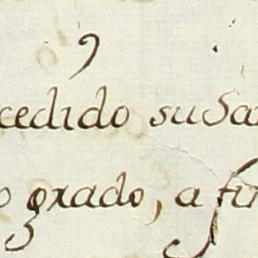 cedido su Sa
o grado, a fin